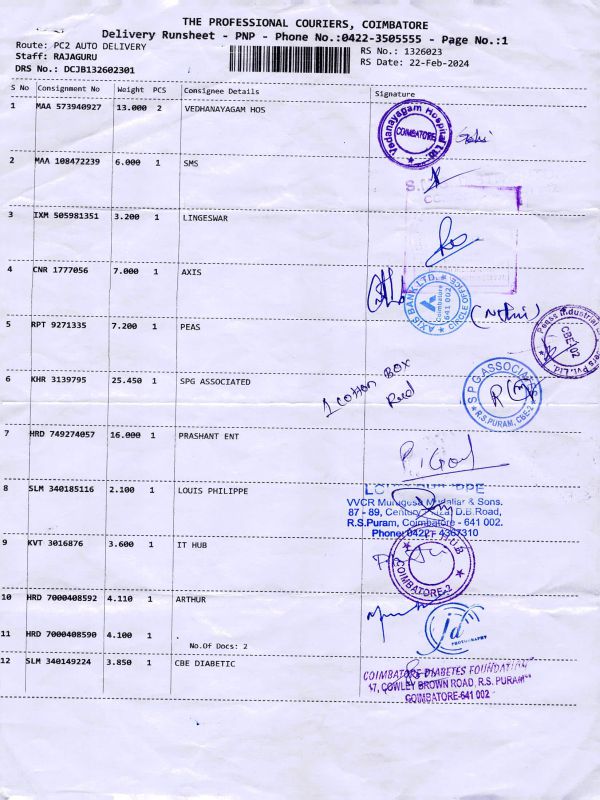 THE PROFESSIONAL COURIERS, COIMBATORE
Delivery Runsheet - PNP - Phone No.:0422-3505555 - Page No.:1
Route: PC2 AUTO DELIVERY
RS No.: 1326023
Staff: RAJAGURU
RS Date: 22-Feb-2024
DRS No.: DCJB132602301
S No Consignment No Weight PCS Consignee Details Signature
1 MAA 573940927 13.000 2 VEDHANAYAGAM HOS
Vedanayagam Hospital Ltd
COIMBATORE
2 MAA 108472239 6.000 1 SMS
3 IXM 505981351 3.200 1 LINGESWAR
4 CNR 1777056 7.000 1 AXIS
AXIS BANK LTD. ★ CIRCLE OFFICE ★
Coimbatore
641 002
5 RPT 9271335 7.200 1 PEAS
CBE-102
6 KHR 3139795 25.450 1 SPG ASSOCIATED
1 Cotton BOX
Red
S.P.G. ASSOCIATES
R.S.PURAM, CBE-2
7 HRD 749274057 16.000 1 PRASHANT ENT
8 SLM 340185116 2.100 1 LOUIS PHILIPPE
VVCR Murugesa Mudaliar & Sons.
87 - 89, Century Plaza, D.B.Road,
R.S.Puram, Coimbatore - 641 002.
Phone: 0422 - 4367310
9 KVT 3016876 3.600 1 IT HUB
COIMBATORE-2
10 HRD 7000408592 4.110 1 ARTHUR
11 HRD 7000408590 4.100 1 .
No.Of Docs: 2
jd
PHOTOGRAPHY
12 SLM 340149224 3.850 1 CBE DIABETIC
COIMBATORE DIABETES FOUNDATION
17, COWLEY BROWN ROAD, R.S. PURAM
COIMBATORE-641 002